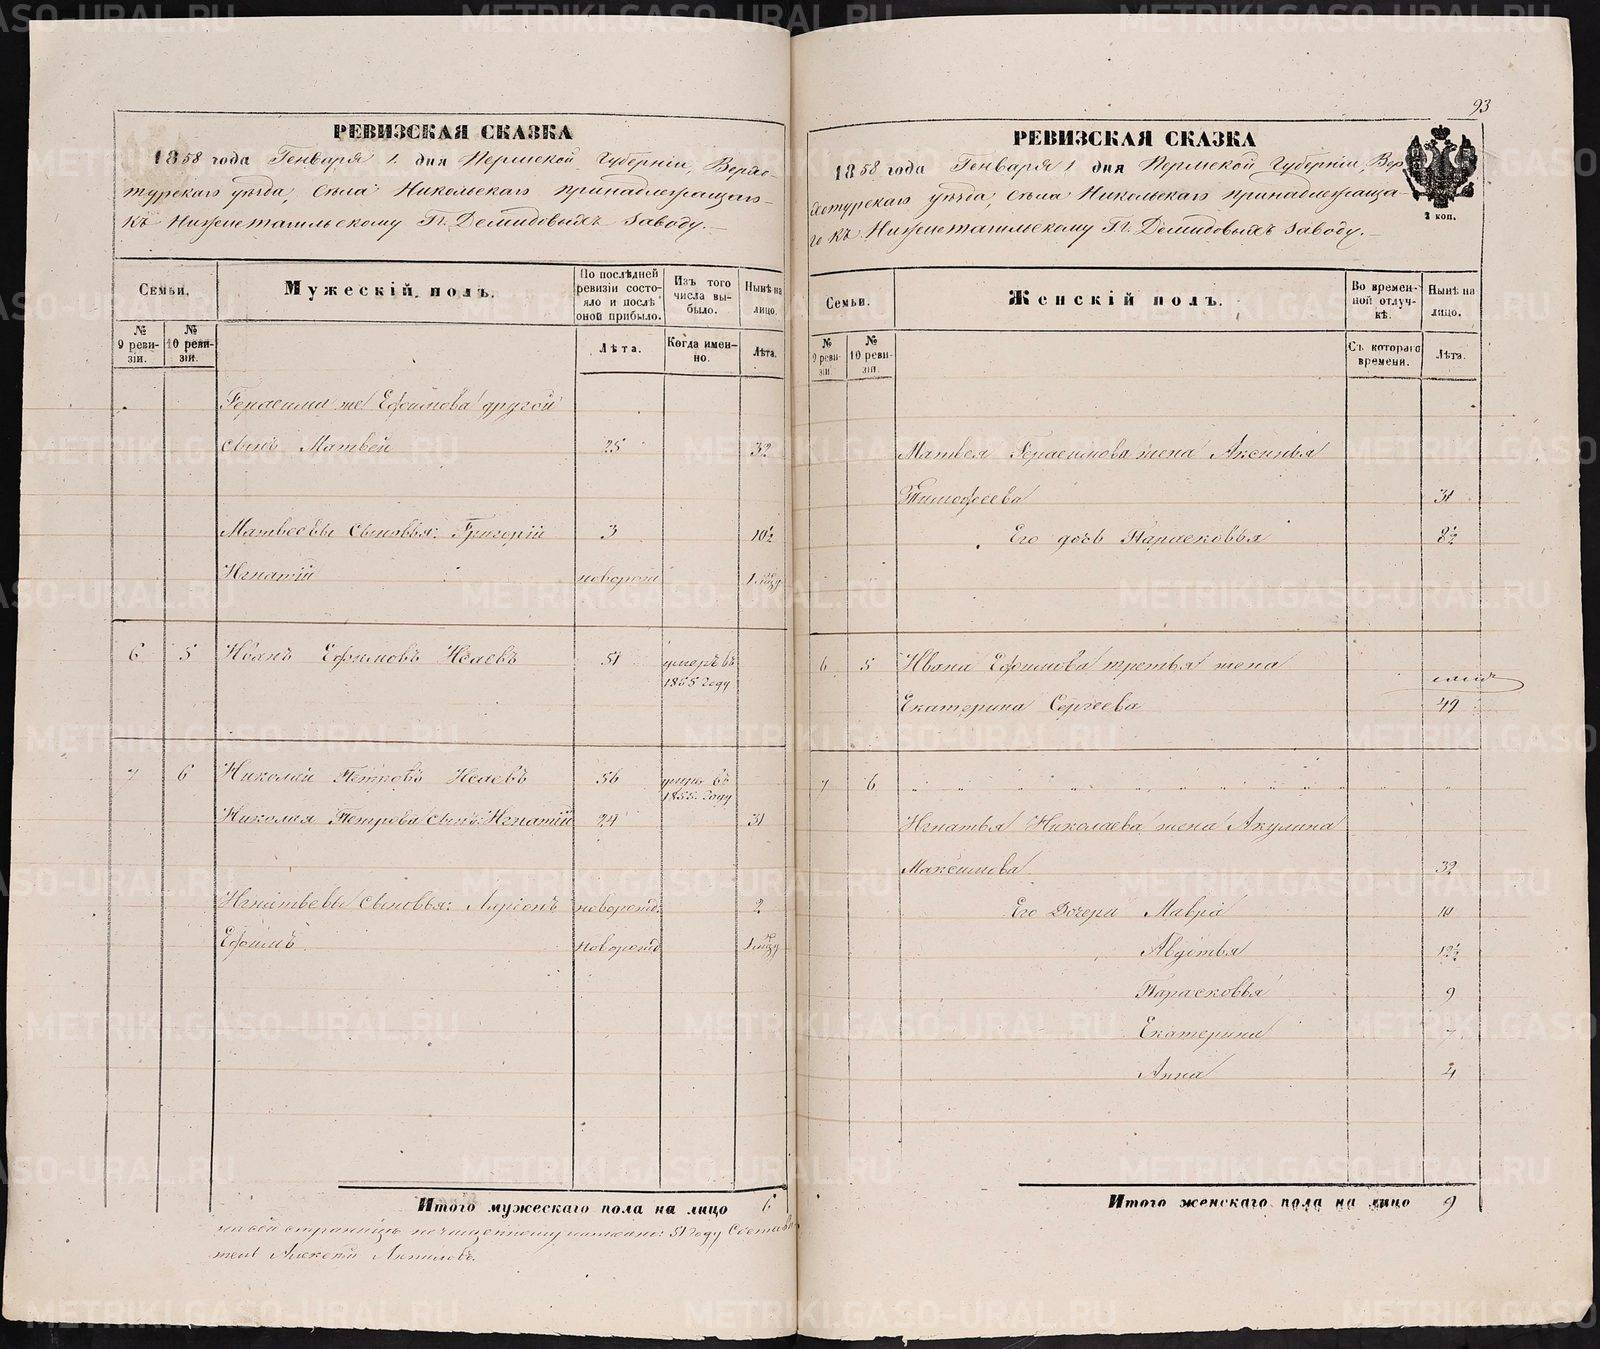 93
РЕВИЗСКАЯ СКАЗКА
1858 года Генваря 1. дня Пермской Губерніи, Верхо-
турскаго уѣзда, села Никольскаго принадлежащаго
къ Нижнетагильскому Гг. Демидовыхъ заводу.
Семьи.
Мужескій полъ.
По послѣдней ревизіи состояло и послѣ оной прибыло.
Изъ того числа выбыло.
Нынѣ на лицо.
№ 9 ревизіи.
№ 10 ревизіи.
Лѣта.
Когда именно.
Лѣта.
Герасима же Ефимова другой
сынъ Матвей 25 32
Матвеевы сыновья: Григорій 3 10½
Игнатій новорож
6 5 Иванъ Ефимовъ Исаевъ 51 умеръ въ
1855 году
7 6 Николай Петровъ Исаевъ 56 умеръ въ
1855 году
Николая Петрова сынъ Игнатій 24 31
Игнатьевы сыновья: новорожд. 2
Ефимъ новорожд
Итого мужескаго пола на лицо 6
на сей страницѣ по чищенному написано: 51 году Состави
тель Алексѣй
РЕВИЗСКАЯ СКАЗКА
1858 года Генваря 1 дня Пермской Губерніи, Вер
хотурскаго уѣзда, села Никольскаго принадлежаща-
го къ Нижнетагильскому Гг. Демидовыхъ заводу.
2 коп.
Семьи.
Женскій полъ.
Во временной отлучкѣ.
Нынѣ на лицо.
№ 9 ревизіи
№ 10 ревизіи.
Съ котораго времени.
Лѣта.
Матвея Герасимова жена Аксинья
Тимофеева 31
Его дочь Парасковья 8½
6 5 Ивана Ефимова третья жена
Екатерина Сергеева 49
7 6
Игнатья Николаева жена Акулина
Максимова 32
Его Дочери Мавра
Авдотья 12½
Парасковья 9
Екатерина 7
Анна 4
Итого женскаго пола на лицо 9
METRIKI.GASO-URAL.RU